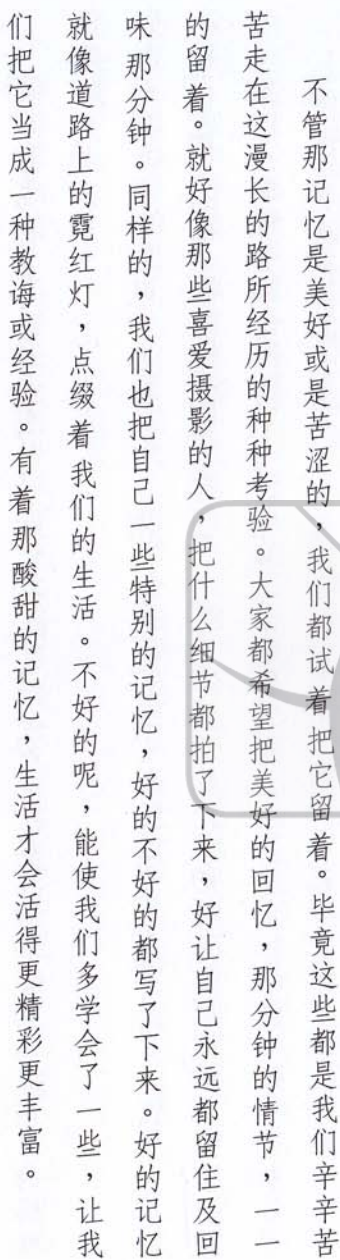 不管那记忆是美好或是苦涩的，我们都试着把它留着。毕竟这些都是我们辛辛苦
苦走在这漫长的路所经历的种种考验。大家都希望把美好的回忆，那分钟的情节，一一
的留着。就好像那些喜爱摄影的人，把什么细节都拍了下来，好让自己永远都留住及回
味那分钟。同样的，我们也把自己一些特别的记忆，好的不好的都写了下来。好的记忆
就像道路上的霓红灯，点缀着我们的生活。不好的呢，能使我们多学会了一些，让我
们把它当成一种教诲或经验。有着那酸甜的记忆，生活才会活得更精彩更丰富。